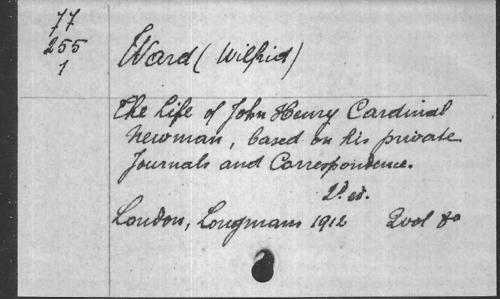 77
255
1
Ward (Wilfrid)
The Life of John Henry Cardinal
Newman, based on his private
Journals and Correspondence.
2d ed.
London, Longmans 1912 2vol 8o